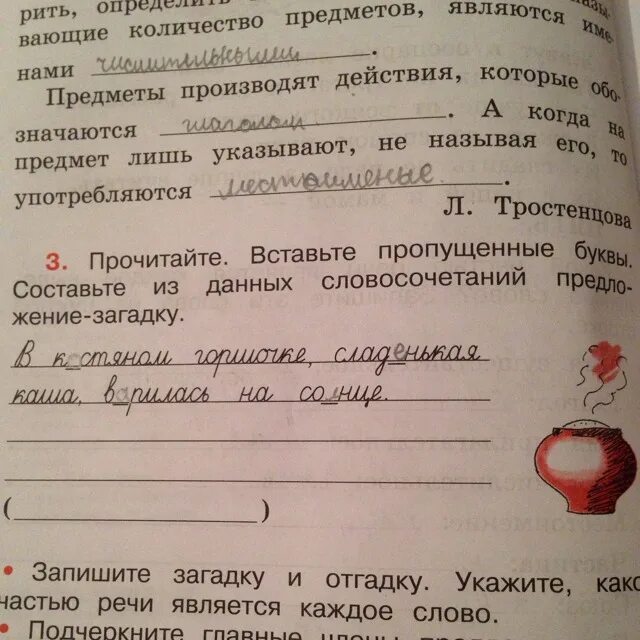 рить, определить
вающие количество предметов, являются име-
нами числительными.
Предметы производят действия, которые обо-
значаются глаголом. А когда на
предмет лишь указывают, не называя его, то
употребляются местоименые.
Л. Тростенцова
3. Прочитайте. Вставьте пропущенные буквы.
Составьте из данных словосочетаний предло-
жение-загадку.
В костяном горшочке, сладенькая
каша, варилась на солнце.
( )
• Запишите загадку и отгадку. Укажите, како
частью речи является каждое слово.
• Подчеркните главные члены